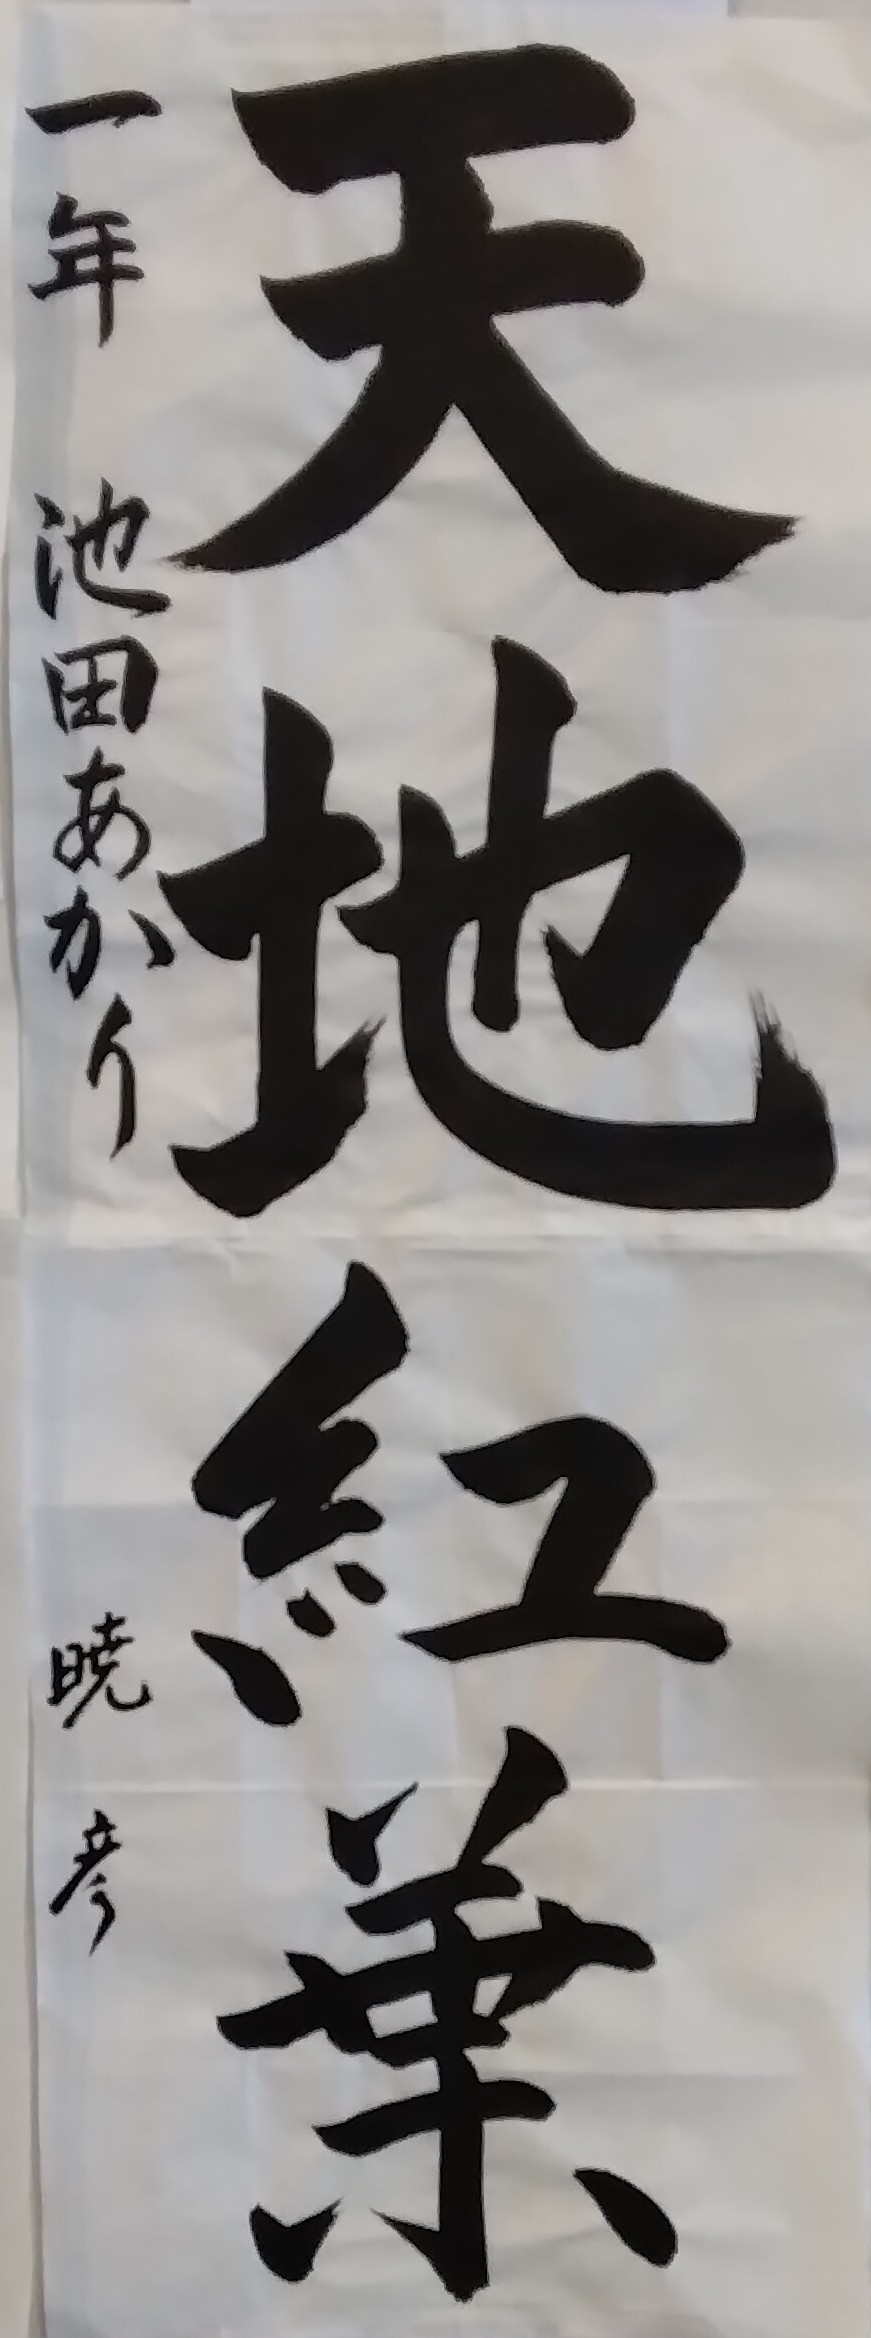 天地紅葉
一年 池田あかり 暁彦